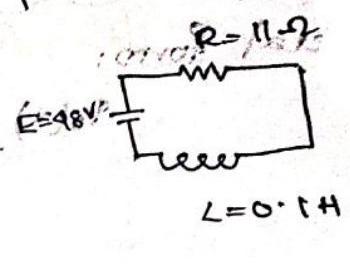 R = 11 Ω
E = 48V
L = 0.1 H